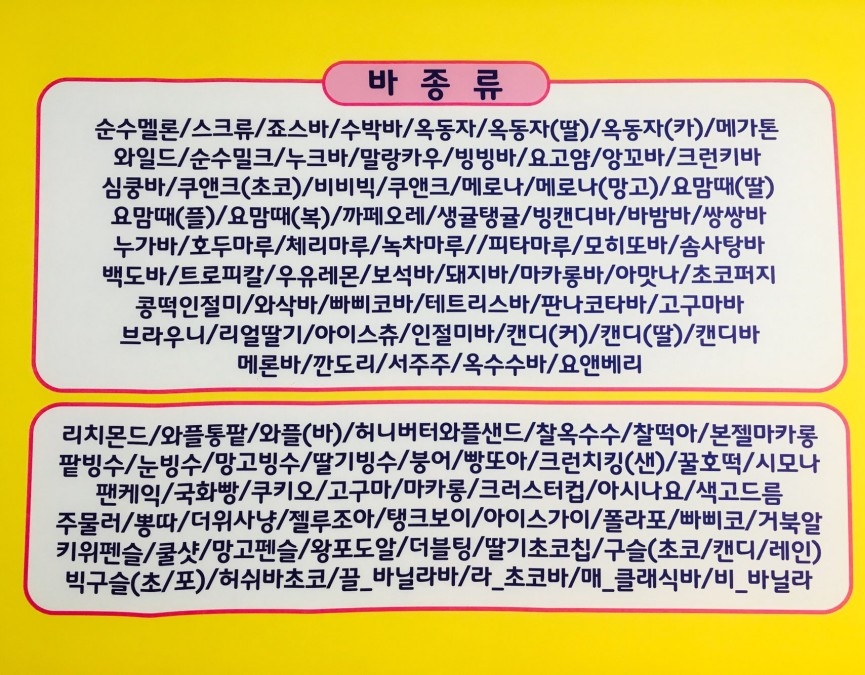 바 종 류
순수멜론/스크류/죠스바/수박바/옥동자/옥동자(딸)/옥동자(카)/메가톤
와일드/순수밀크/누크바/말랑카우/빙빙바/요고얌/앙꼬바/크런키바
심쿵바/쿠앤크(초코)/비비빅/쿠앤크/메로나/메로나(망고)/요맘때(딸)
요맘때(플)/요맘때(복)/까페오레/생귤탱귤/빙캔디바/바밤바/쌍쌍바
누가바/호두마루/체리마루/녹차마루//피타마루/모히또바/솜사탕바
백도바/트로피칼/우유레몬/보석바/돼지바/마카롱바/아맛나/초코퍼지
콩떡인절미/와삭바/빠삐코바/테트리스바/판나코타바/고구마바
브라우니/리얼딸기/아이스츄/인절미바/캔디(커)/캔디(딸)/캔디바
메론바/깐도리/서주주/옥수수바/요앤베리
리치몬드/와플통팥/와플(바)/허니버터와플샌드/찰옥수수/찰떡아/본젤마카롱
팥빙수/눈빙수/망고빙수/딸기빙수/붕어/빵또아/크런치킹(샌)/꿀호떡/시모나
팬케익/국화빵/쿠키오/고구마/마카롱/크러스터컵/아시나요/색고드름
주물러/뽕따/더위사냥/젤루조아/탱크보이/아이스가이/폴라포/빠삐코/거북알
키위펜슬/쿨샷/망고펜슬/왕포도알/더블팅/딸기초코칩/구슬(초코/캔디/레인)
빅구슬(초/포)/허쉬바초코/끌_바닐라바/라_초코바/매_클래식바/비_바닐라